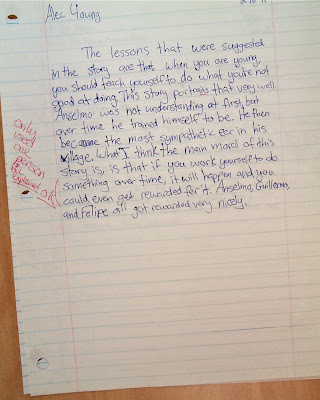 Alec Young
The lessons that were suggested
in the story are that when you are young,
you should teach yourself to do what you're not
good at doing. This story portraits that very well.
Anselmo was not understanding at first, but
over time he trained himself to be. He then
became the most sympathetic ear in his
village. What I think the main moral of this
story is, is that if you work yourself to do
something over time, it will happen and you
could even get rewarded for it. Anselmo, Guillermo,
and Felipe all got rewarded very nicely.
only
used
one
person
explained